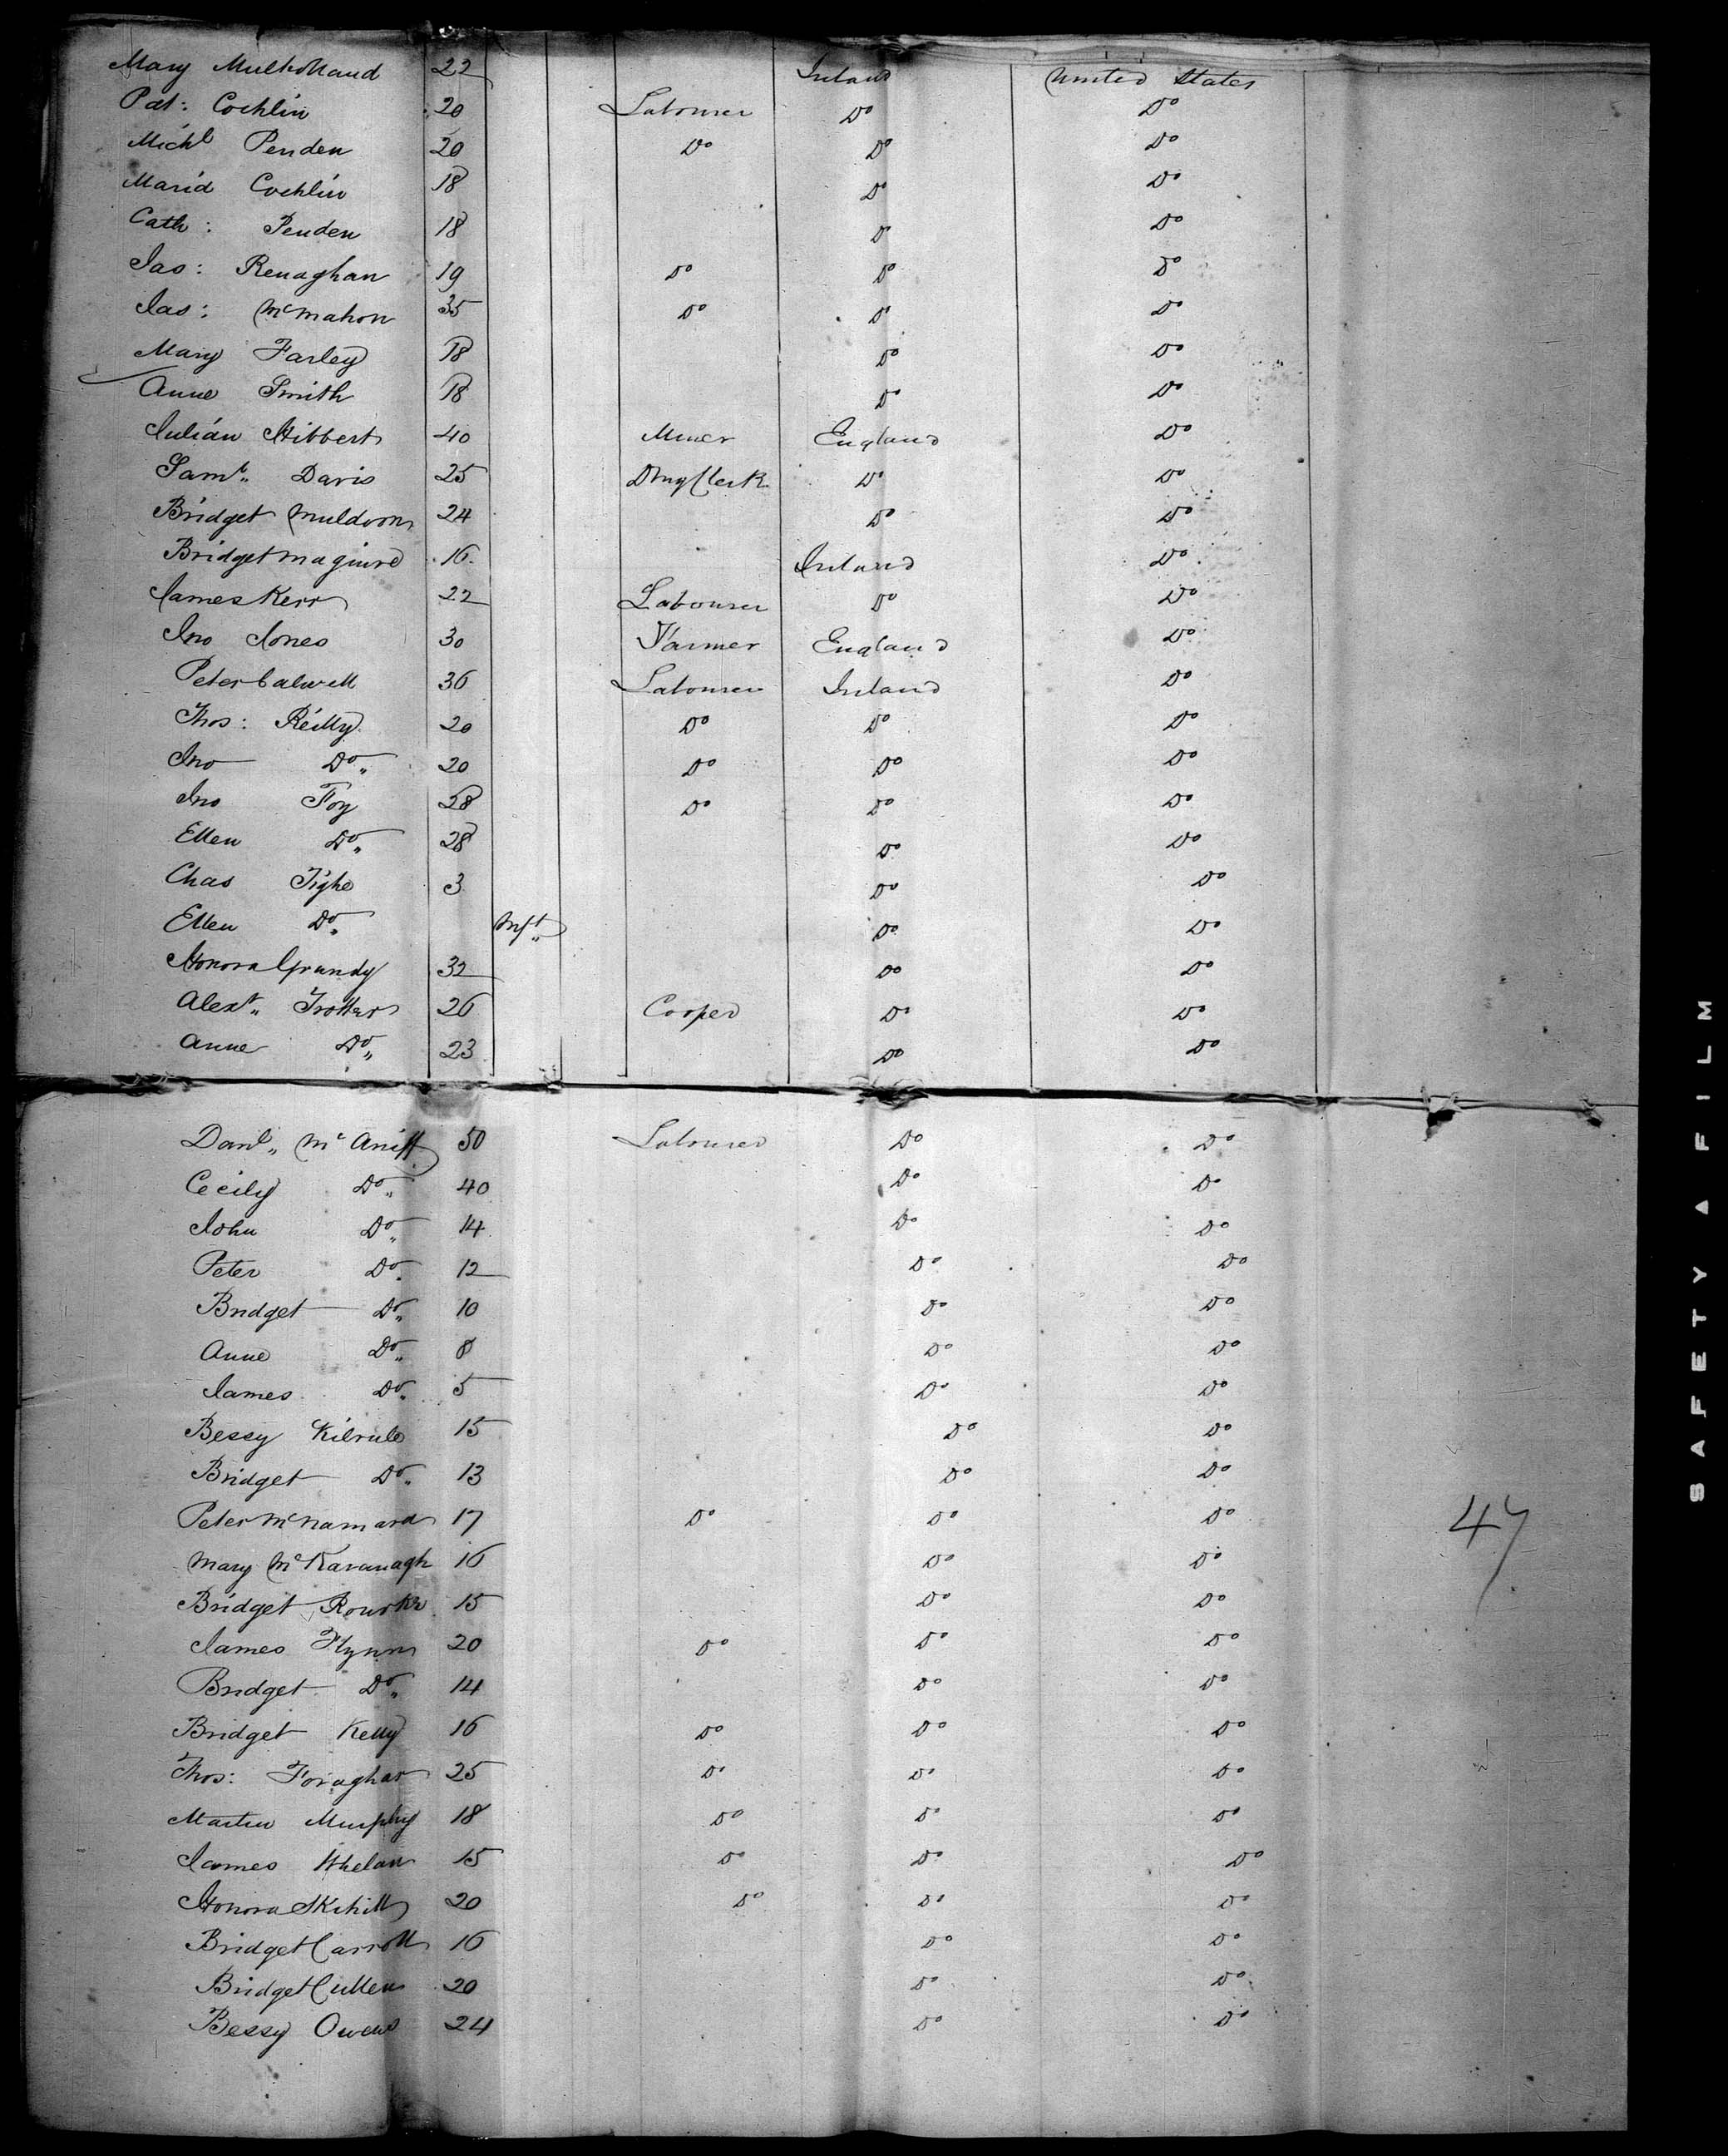 Mary Mulholland 22 Ireland United States
Pat: Cochlin 20 Labourer Do Do
Michl Penden 20 Do Do Do
Maria Cochlin 18 Do Do
Cath: Penden 18 Do Do
Jas: Renaghan 19 Do Do Do
Jas: McMahon 35 Do Do Do
Mary Farley 18 Do Do
Anne Smith 18 Do Do
Julian Hibbert 40 Miner England Do
Saml. Davis 25 Do Do
Bridget Muldoon 24 Do Do
Bridget Maguire 16 Ireland Do
James Kerr 22 Labourer Do Do
Jno Jones 30 Farmer England Do
Peter Calwell 36 Labourer Ireland Do
Thos: Reilly 20 Do Do Do
Jno Do 20 Do Do Do
Jno Foy 28 Do Do Do
Ellen Do 28 Do Do
Chas Tighe 3 Do Do
Ellen Do Inft Do Do
Honora Grundy 32 Do Do
Alexr. Trotter 26 Cooper Do Do
Anne Do 23 Do Do
Danl. McAniff 50 Labourer Do Do
Cecily Do 40 Do Do
John Do 14 Do Do
Peter Do 12 Do Do
Bridget Do 10 Do Do
Anne Do 8 Do Do
James Do 5 Do Do
Bessy Kilrule 15 Do Do
Bridget Do 13 Do Do
Peter McNamara 17 Do Do Do
Mary McKavanagh 16 Do Do
Bridget Rourke 15 Do Do
James Flynn 20 Do Do Do
Bridget Do 14 Do Do
Bridget Kelly 16 Do Do Do
Thos: Foraghar 25 Do Do Do
Martin Murphy 18 Do Do Do
James Whelan 15 Do Do Do
Honora Skihill 20 Do Do Do
Bridget Carroll 16 Do Do
Bridget Cullen 20 Do Do
Bessy Owens 24 Do Do
47
SAFETY ▲ FILM